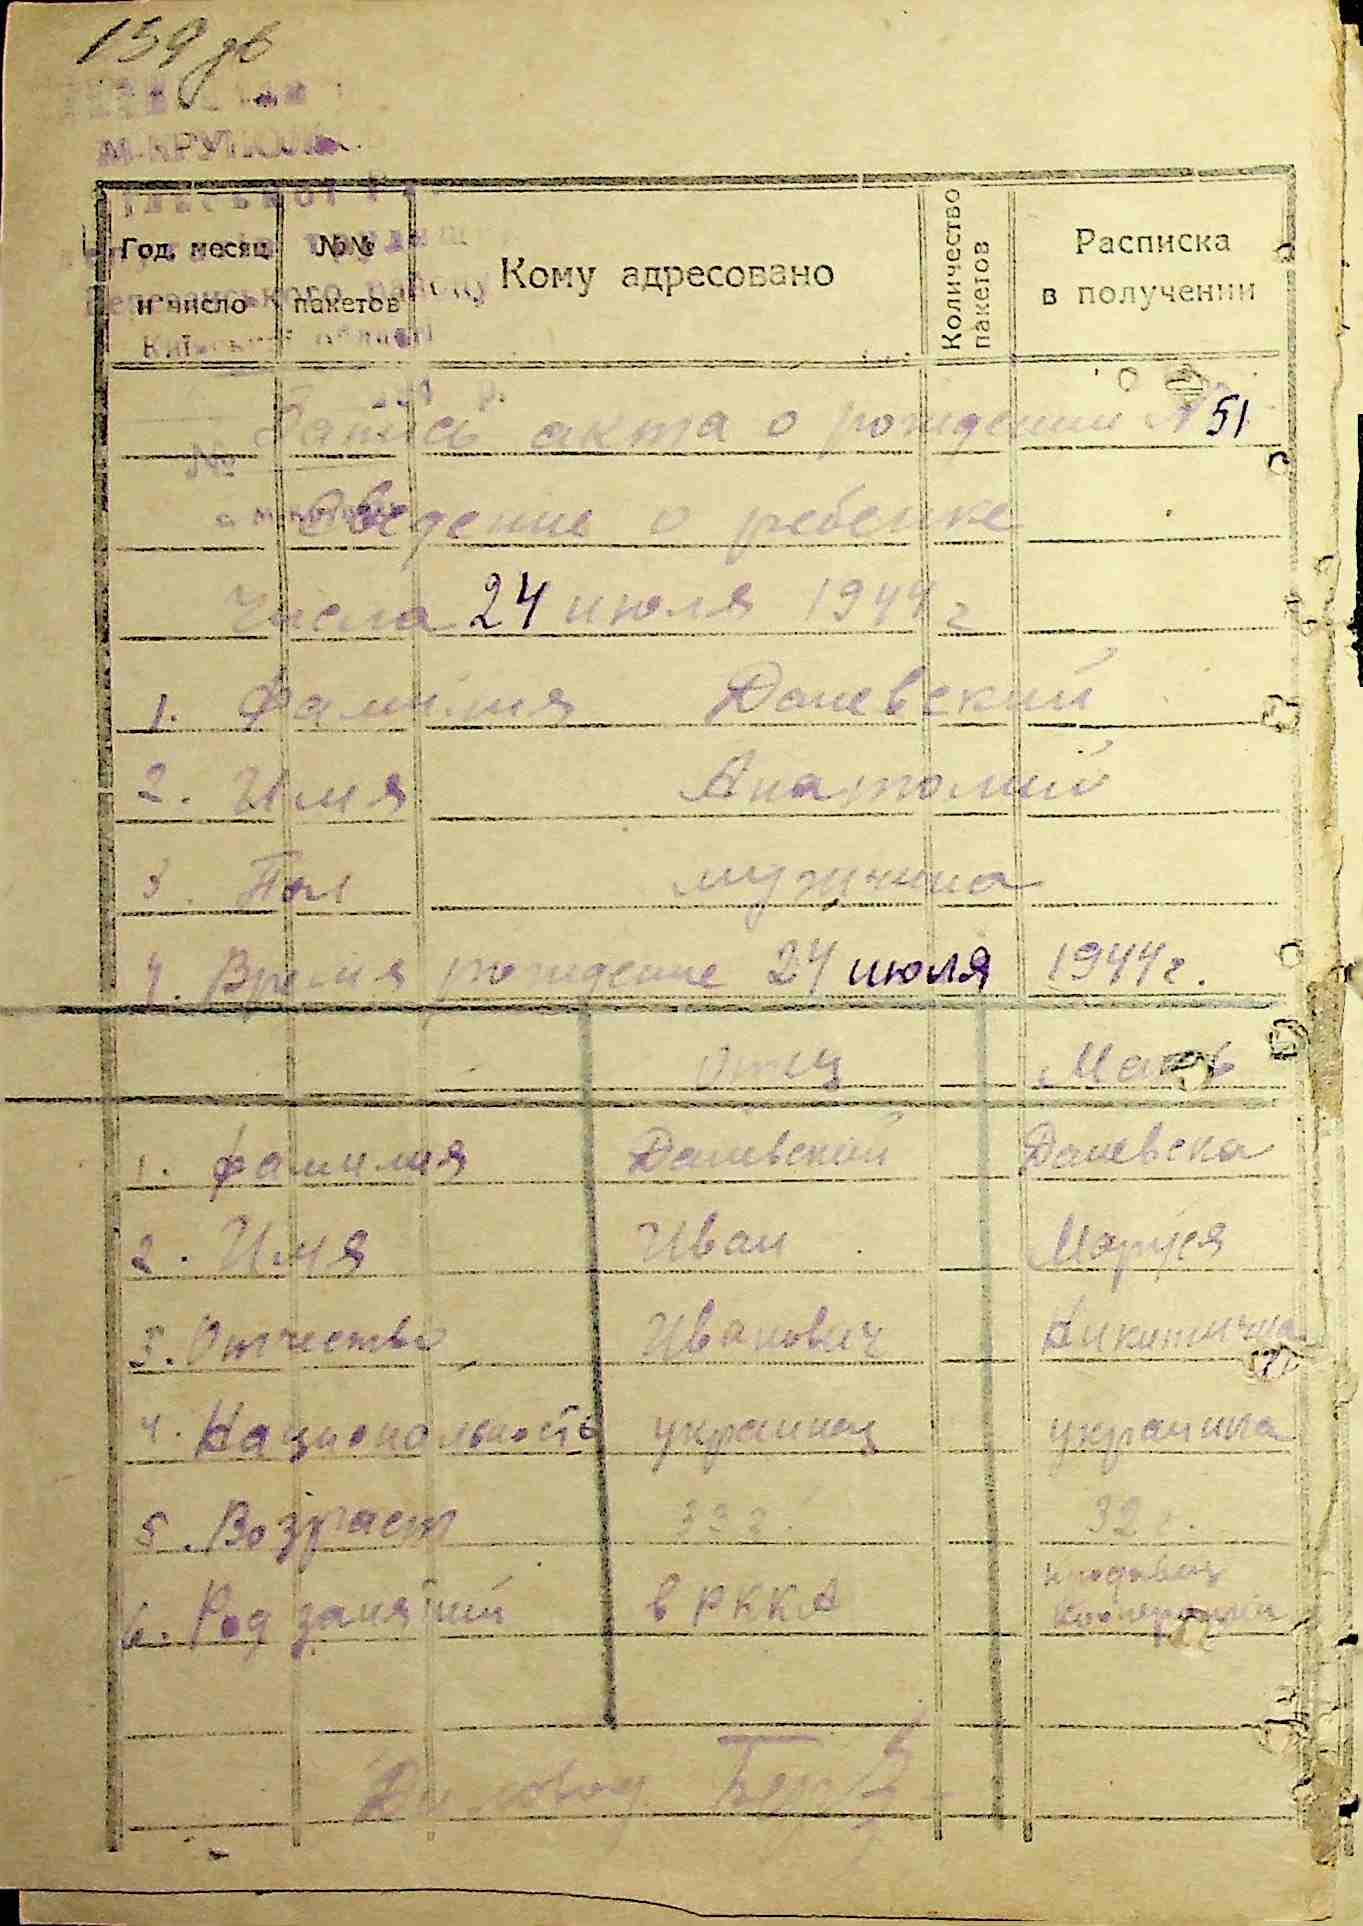 159 дв
М-КРУПІЛЬ
Год, месяц и число
№№ пакетов
Кому адресовано
Количество пакетов
Расписка в получении
Київської області
Запись акта о рождении № 51
Сведение о ребенке
Числа 24 июля 1944 г
1. Фамилия Даневский
2. Имя Анатолий
3. Пол мужчина
4. Время рождение 24 июля 1944 г.
Отец Мать
1. Фамилия Даневский Даневска
2. Имя Иван Маруся
3. Отчество Иванович Никитична
4. Национальность украинец украинка
5. Возраст 33 г. 32 г.
6. Род занятий в РККА продавец
Кооперации